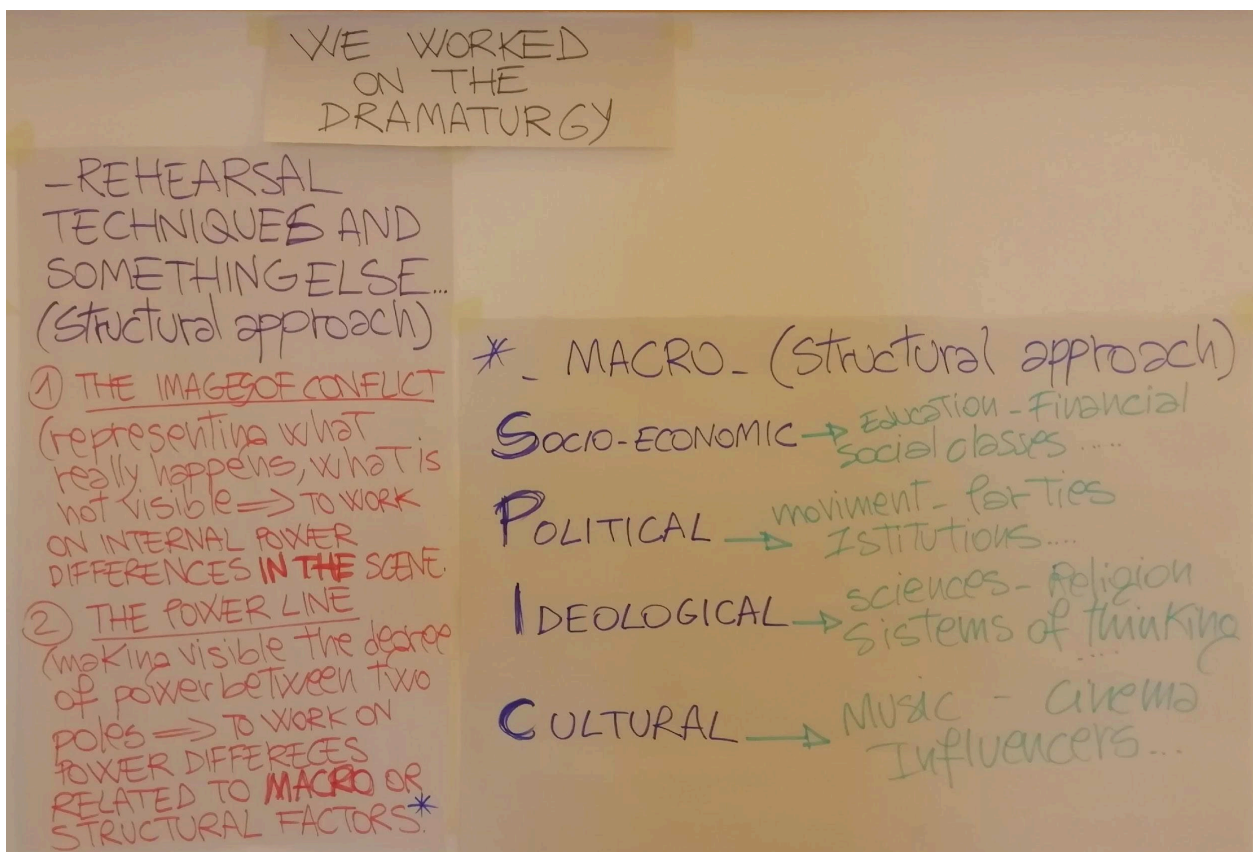 WE WORKED
ON THE
DRAMATURGY
-REHEARSAL
TECHNIQUES AND
SOMETHING ELSE...
(structural approach)
1 THE IMAGES OF CONFLICT
(representing what
really happens, what is
not visible => TO WORK
ON INTERNAL POWER
DIFFERENCES IN THE SCENE.
2 THE POWER LINE
(making visible the degree
of power between two
poles => TO WORK ON
POWER DIFFERECES
RELATED TO MACRO OR
STRUCTURAL FACTORS.*
*_ MACRO_ (structural approach)
SOCIO-ECONOMIC → EDUCATION - FINANCIAL
social classes.....
POLITICAL → moviment - Parties
ISTITUTIONS....
IDEOLOGICAL → sciences - Religion
Sistems of thinking
....
CULTURAL → MUSIC - Cinema
Influencers...